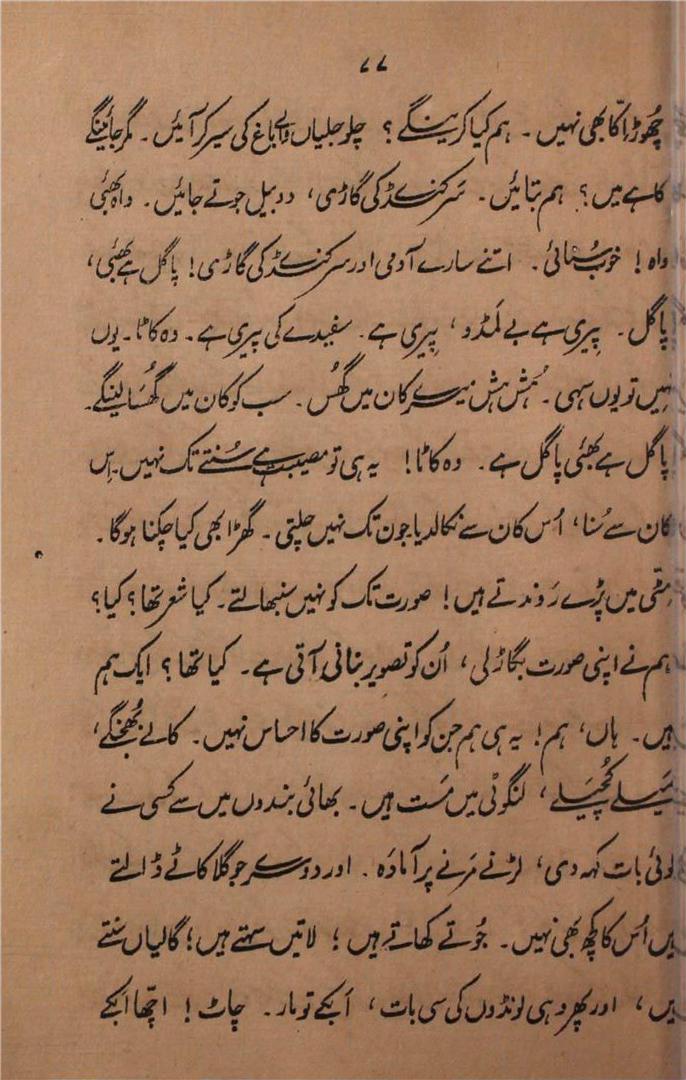 ۷۷
چھوڑ اِکّا بھی نہیں۔ ہم کیا کرینگے؟ چلو جلیاں والے باغ کی سیر کر آئیں۔ مگر جائینگے
کاہے میں؟ ہم بتائیں۔ سَرکنڈے کی گاڑی، دو بیل جوتے جائیں۔ واہ بھئی
واہ! خوب سُنائی۔ اتنے سارے آدمی اور سرکنڈے کی گاڑی! پاگل ہے بھئی،
پاگل۔ پِیری ہے بے لَمڈو، پِیری ہے۔ سفیدے کی پیری ہے۔ وہ کاٹا۔ یوں
نہیں تو یوں سہی۔ ہُش ہُش میرے کان میں گھُس۔ سب کو کان میں گھُسا لینگے۔
پاگل ہے بھئی پاگل ہے۔ وہ کاٹا! یہ ہی تو مصیبت ہے سُنتے تک نہیں۔ اِس
کان سے سُنا، اُس کان سے نکالدیا۔ جوں تک نہیں چلتی۔ گھڑا بھی کیا چکنا ہوگا۔
مٹّی میں پڑے رَوندتے ہیں! صورت تک کو نہیں سنبھالتے۔ کیا شعر تھا؟ کیا؟
ہم نے اپنی صورت بگاڑلی، اُن کو تصویر بنانی آتی ہے۔ کیا تھا؟ ایک ہم
ہیں۔ ہاں، ہم! یہ ہی ہم جن کو اپنی صورت کا احساس نہیں۔ کالے بھُجنگے،
مَیلے کُچَیلے، لنگوٹی میں مَست ہیں۔ بھائی بندوں میں سے کسی نے
کوئی بات کہہ دی، لڑنے مَرنے پر آمادَہ۔ اور دوسرے جو گلا کاٹے ڈالتے
ہیں اُس کا کچھ بھی نہیں۔ جُوتے کھاتے ہیں؛ لاتیں سہتے ہیں؛ گالیاں سنتے
ہیں، اور پھر وہی لونڈوں کی سی بات، اَبکے تو مار۔ چاٹ! اچّھا اَبکے